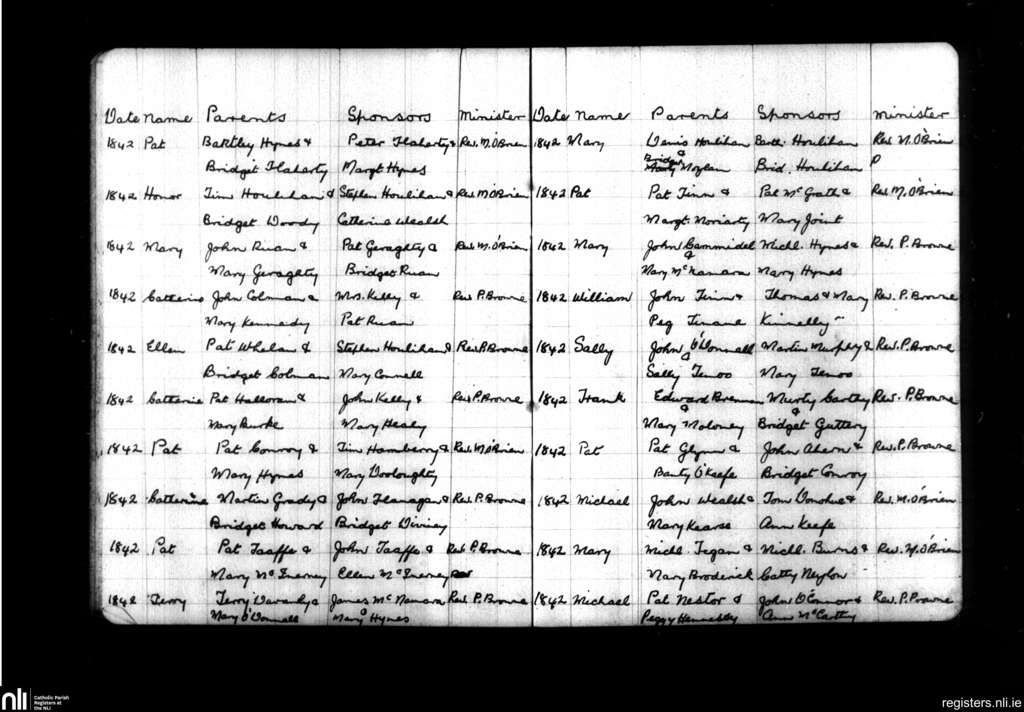 Date Name Parents Sponsors Minister
1842 Pat Bartley Hynes & Peter Flaherty & Rev. M. O'Brien
Bridget Flaherty Margt Hynes
1842 Honor Tim Houlihan & Stephen Houlihan & Rev M O'Brien
Bridget Woody Catherine Wealsh
1842 Mary John Ruan & Pat Geraghty & Rev. M. O'Brien
Mary Geraghty Bridget Ruan
1842 Catherine John Colman & Mrs. Kelly & Rev P. Browne
Mary Kennedy Pat Ruan
1842 Ellen Pat Whelan & Stephen Houlihan & Rev P. Browne
Bridget Colman Mary Connell
1842 Catherine Pat Halloran & John Kelly & Rev P. Browne
Mary Burke Mary Healy
1842 Pat Pat Conroy & Tim Hamberry & Rev. M O'Brien
Mary Hynes Mary Dooloughty
1842 Catherine Martin Grady & John Flanagan & Rev P. Browne
Bridget Howard Bridget Diviney
1842 Pat Pat Taaffe & John Taaffe & Rev P. Browne
Mary McInerney Ellen McInerney
1842 Terry Terry & James McNamara & Rev P. Browne
Mary O'Donnell Mary Hynes
Date Name Parents Sponsors Minister
1842 Mary Denis Houlihan & Barth. Houlihan Rev M. O'Brien
Bridget Moylan Brid. Houlihan P
1842 Pat Pat Finn & Pat McGrath & Rev M. O'Brien
Margt. Moriarty Mary Joint
1842 Mary John Cammidel & Michl. Hynes & Rev. P. Browne
Mary McNamara Mary Hynes
1842 William John Finn & Thomas & Mary Rev. P. Browne
Peg Tinane Kinnelly
1842 Sally John O'Donnell & Martin Murphy & Rev. P. Browne
Sally Tenoo Mary Tenoo
1842 Frank Edward Brennan & Murty Cartey & Rev. P. Browne
Mary Moloney Bridget Guttery
1842 Pat Pat Glynn & John Ahern & Rev. P. Browne
Banty O'Keefe Bridget Conroy
1842 Michael John Wealsh & Tom Donohue & Rev. M. O'Brien
Mary Kearse Ann Keefe
1842 Mary Michl. Fegan & Michl. Burns & Rev. M. O'Brien
Mary Broderick Catty Neylon
1842 Michael Pat Nestor & John O'Connor & Rev. P. Browne
Peggy Hennebby Ann McCarthy
nli Catholic Parish
Registers at
the NLI
registers.nli.ie